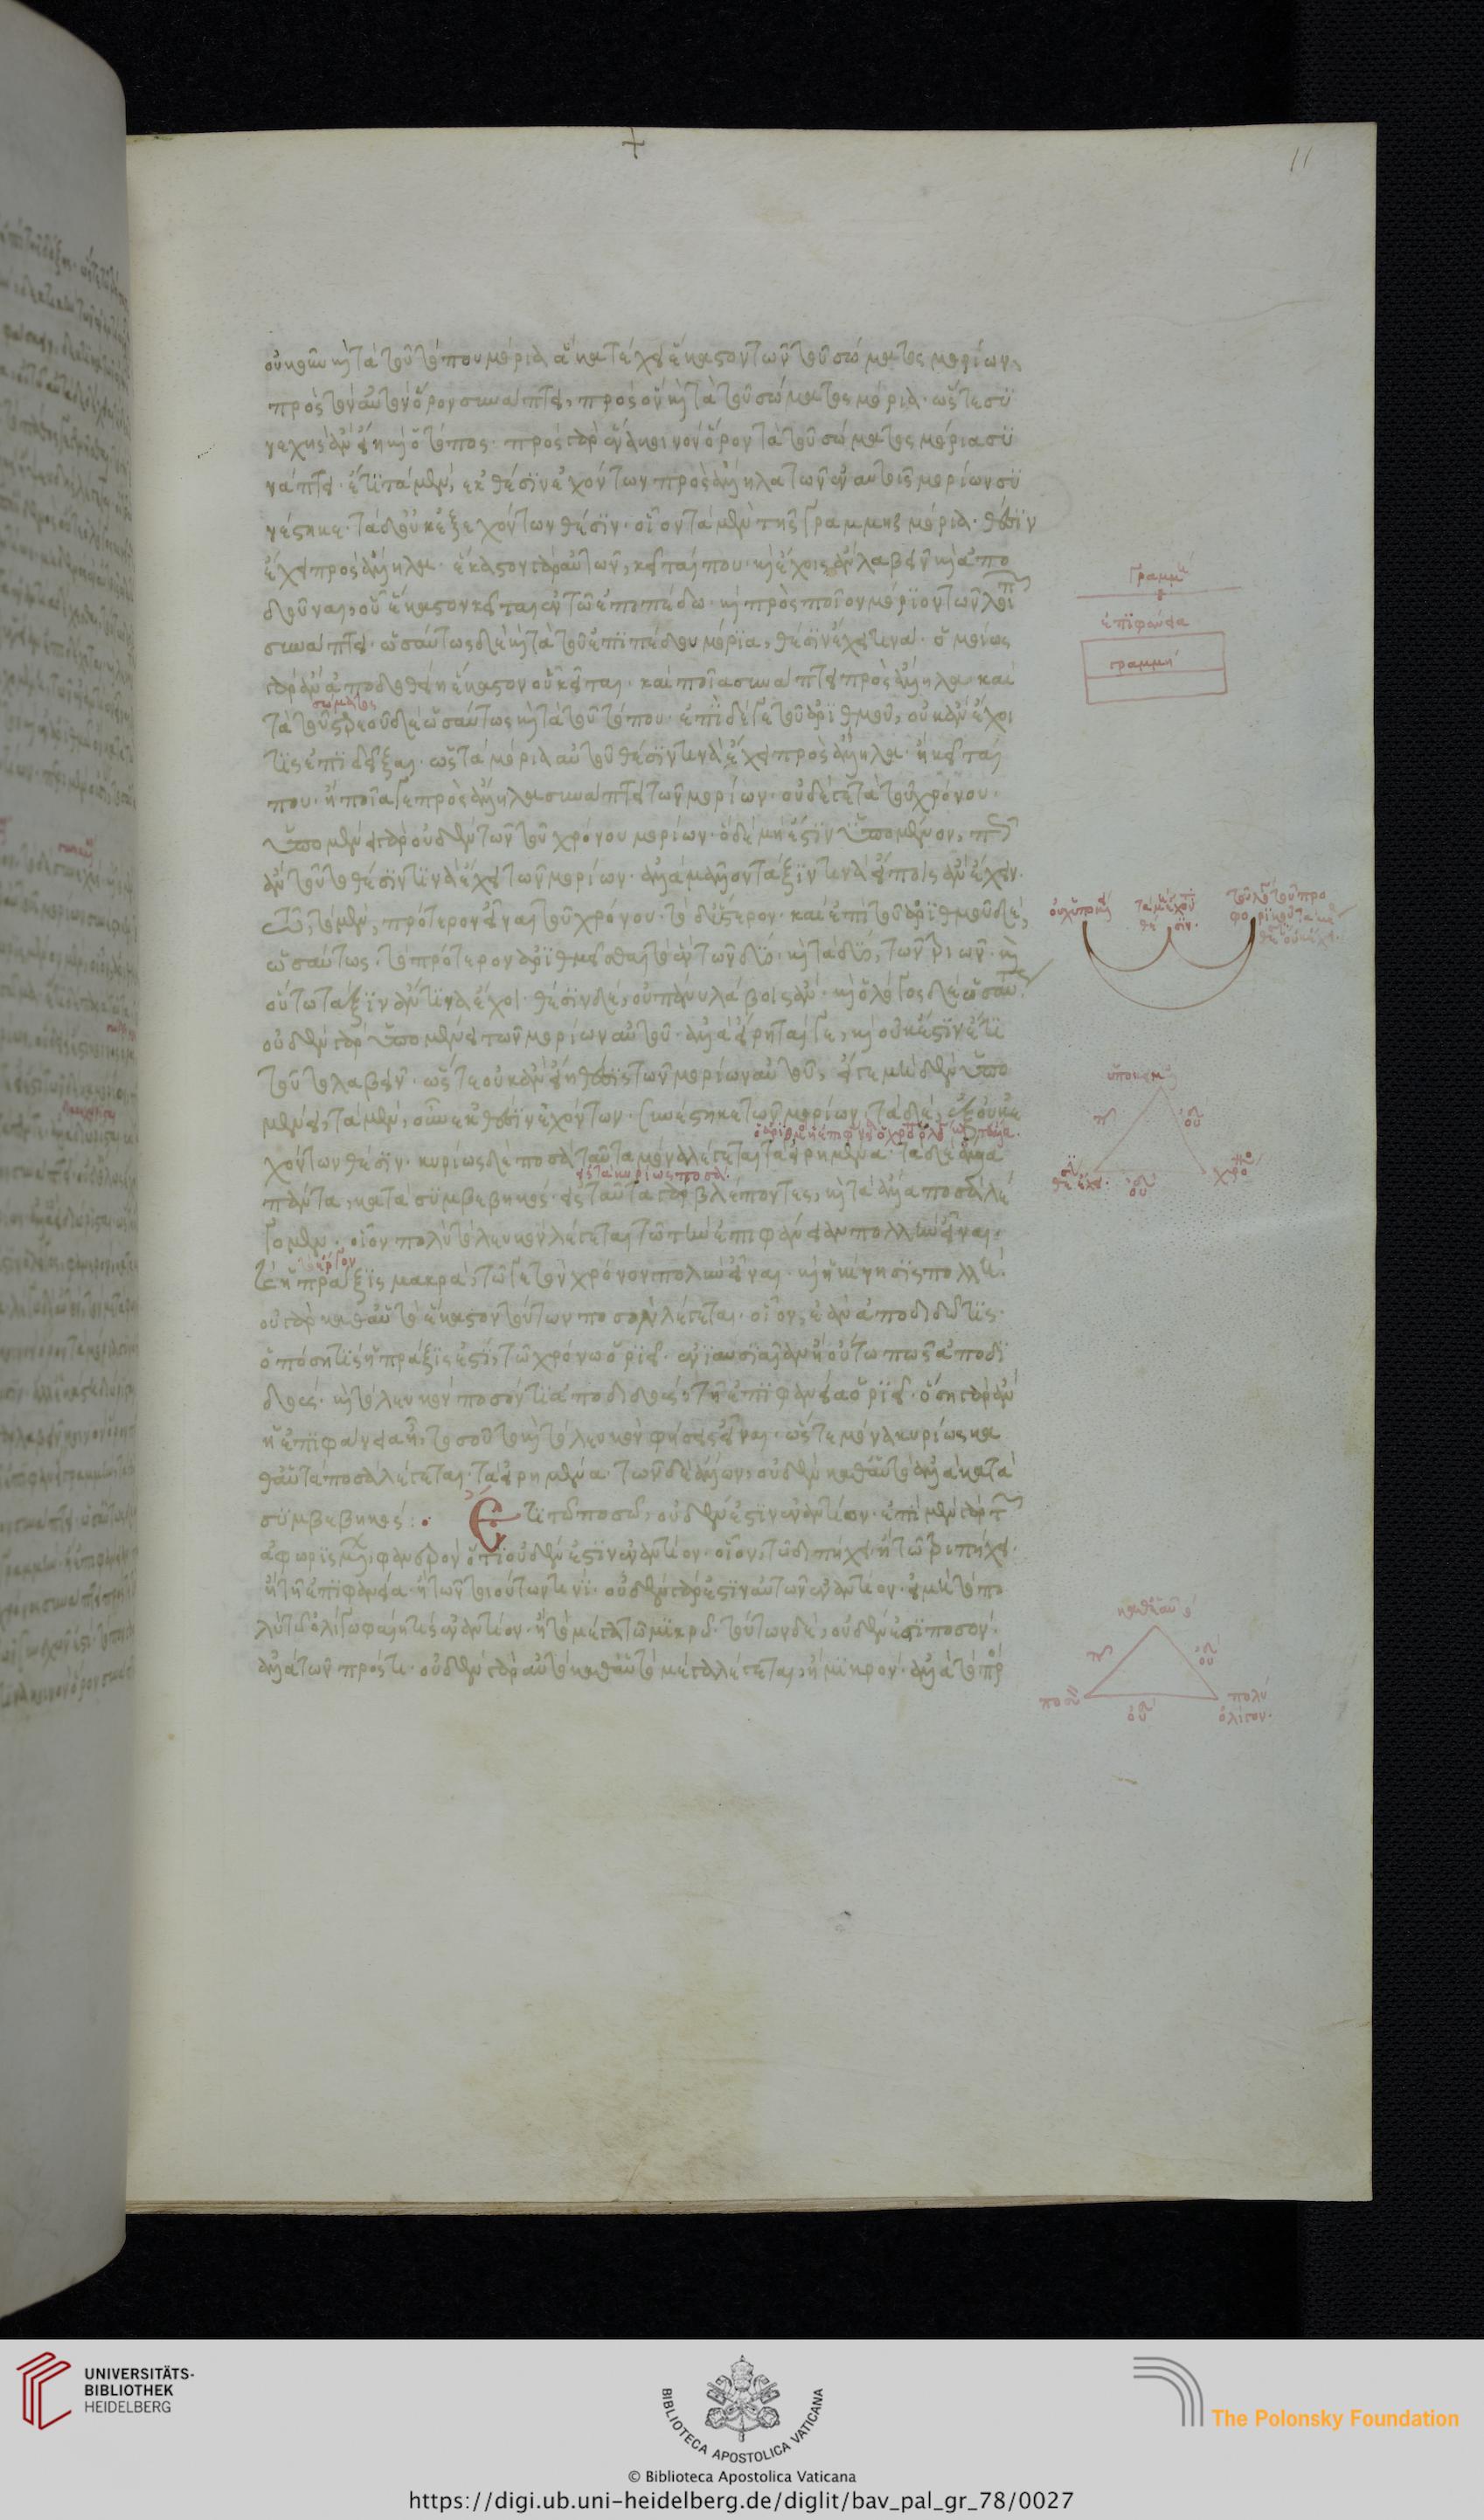 11
οὐκοῦν καὶ τὰ τοῦ τόπου μόρια ἃ κατέχει ἕκαστον τῶν τοῦ σώματος μορίων,
πρὸς τὸν αὐτὸν ὅρον συνάπτει, πρὸς ὃν καὶ τὰ τοῦ σώματος μόρια. ὥστε συ
νεχὴς ἂν εἴη καὶ ὁ τόπος. πρὸς γὰρ ἕνα κοινὸν ὅρον τὰ τοῦ σώματος μόρια συ
νάπτει. ἔτι τὰ μὲν, ἐκ θέσιν ἐχόντων πρὸς ἄλληλα τῶν ἐν αὐτοῖς μορίων συ
νέστηκε. τὰ δὲ οὐκ ἐξ ἐχόντων θέσιν. οἷον τὰ μὲν τῆς γραμμῆς μόρια. θέσιν
ἔχει πρὸς ἄλληλα. ἕκαστον γὰρ αὐτῶν, κεῖταί που. καὶ ἔχοις ἂν λαβεῖν καὶ ἀπο
δοῦναι, οὗ ἕκαστον κεῖται ἐν τῶ ἐπιπέδω. καὶ πρὸς ποῖον μόριον τῶν λοιπ
συνάπτει. ὡσαύτως δὲ καὶ τὰ τοῦ ἐπιπέδου μόρια, θέσιν ἔχει τινά. ὁμοίως
γὰρ ἂν ἀποδοθείη ἕκαστον οὗ κεῖται. καὶ ποῖα συνάπτει πρὸς ἄλληλα. καὶ
σώματος
τὰ τοῦ στερεοῦ δὲ ὡσαύτως καὶ τὰ τοῦ τόπου. ἐπὶ δέ γε τοῦ ἀριθμοῦ, οὐκ ἂν ἔχοι
τις ἐπιδεῖξαι. ὡς τὰ μόρια αὐτοῦ θέσιν τινὰ ἔχει πρὸς ἄλληλα. ἢ κεῖταί
που. ἢ ποῖά γε πρὸς ἄλληλα συνάπτει τῶν μορίων. οὐδὲ γε τὰ τοῦ χρόνου.
ὑπομένει γὰρ οὐδὲν τῶν τοῦ χρόνου μορίων. ὃ δὲ μή ἐστιν ὑπομένον, π
ἂν τοῦτο θέσιν τινὰ ἔχει τῶν μορίων. ἀλλὰ μᾶλλον τάξιν τινὰ εἴποις ἂν ἔχειν.
τῶ, τὸ μὲν, πρότερον εἶναι τοῦ χρόνου. τὸ δ' ὕστερον. καὶ ἐπὶ τοῦ ἀριθμοῦ δὲ,
ὡσαύτως. τὸ πρότερον ἀριθμεῖσθαι τὸ ἓν τῶν δύο. καὶ τὰ δύο, τῶν τριῶν. καὶ
οὕτω τάξιν ἄν τινα ἔχοι. θέσιν δὲ, οὐ πάνυ λάβοις ἄν. καὶ ὁ λόγος δὲ ὡσαύτ
οὐδὲν γὰρ ὑπομένει τῶν μορίων αὐτοῦ. ἀλλὰ εἴρηταί γε, καὶ οὐκ ἔστιν ἔτι
τοῦτο λαβεῖν. ὥστε οὐκ ἂν εἴη θέσις τῶν μορίων αὐτοῦ, εἴγε μηδὲν ὑπο
μένει, τὰ μὲν, οὖν ἐκ θέσιν ἐχόντων συνέστηκε τῶν μορίων, τὰ δὲ, ἐξ οὐκ ἐ
χόντων θέσιν. κυρίως δὲ ποσὰ ταῦτα μόνα λέγεται τὰ εἰρημένα. τὰ δὲ ἄλλα
εἰς τὰ κυρίως ποσά.
πάντα, κατὰ συμβεβηκός. εἰς ταῦτα γὰρ βλέποντες, καὶ τὰ ἄλλα ποσὰ λέ
γομεν. οἷον πολὺ τὸ λευκὸν λέγεται τῶ τὴν ἐπιφάνειαν πολλὴν εἶναι.
ἔργον
καὶ ἡ πρᾶξις μακρὰ, τῶ γε τὸν χρόνον πολὺν εἶναι. καὶ ἡ κίνησις πολλή.
οὐ γὰρ καθ' αὑτὸ ἕκαστον τούτων ποσὸν λέγεται. οἷον, ἐὰν ἀποδιδῶ τις.
ὁπόση τίς ἡ πρᾶξις ἐστὶ, τῶ χρόνω ὁριεῖ. ἐνιαυσιαίαν ἢ οὕτω πως ἀποδι
δούς. καὶ τὸ λευκὸν ποσόν τι ἀποδιδοὺς, τῆ ἐπιφανεία ὁριεῖ. ὅση γὰρ ἂν
ἡ ἐπιφάνεια ἦ, τοσοῦτον καὶ τὸ λευκὸν φήσεις εἶναι. ὥστε μόνα κυρίως κα
θ' αὑτὰ ποσὰ λέγεται. τὰ εἰρημένα. τῶν δὲ ἄλλων, οὐδὲν καθ' αὑτὸ ἀλλὰ κατὰ
συμβεβηκός: Ἔτι τῶ ποσῶ, οὐδέν ἐστιν ἐναντίον. ἐπὶ μὲν γὰρ τ
ἀφωρισμ, φανερὸν ὅτι οὐδέν ἐστιν ἐναντίον. οἷον, τῶ διπήχει. ἢ τῶ τριπήχει.
ἢ τῆ ἐπιφανεία. ἢ τῶν τοιούτων τινί. οὐδὲν γάρ ἐστιν αὐτῶν ἐναντίον. εἰ μὴ τὸ πο
λὺ τῶ ὀλίγω φαίη τις ἐναντίον. ἢ τὸ μέγα τῶ μικρῶ. τούτων δὲ, οὐδέν ἐστι ποσόν.
ἀλλὰ τῶν πρός τι. οὐδὲν γὰρ αὐτὸ καθ' αὑτὸ μέγα λέγεται, ἢ μικρόν. ἀλλὰ τὸ πρ
γραμμή
ἐπιφάνεια
γραμμή
καθ' αὑτό
ποσόν
πολύ
ὀλίγον.
UNIVERSITÄTS-
BIBLIOTHEK
HEIDELBERG
BIBLIOTECA APOSTOLICA VATICANA
The Polonsky Foundation
© Biblioteca Apostolica Vaticana
https://digi.ub.uni-heidelberg.de/diglit/bav_pal_gr_78/0027